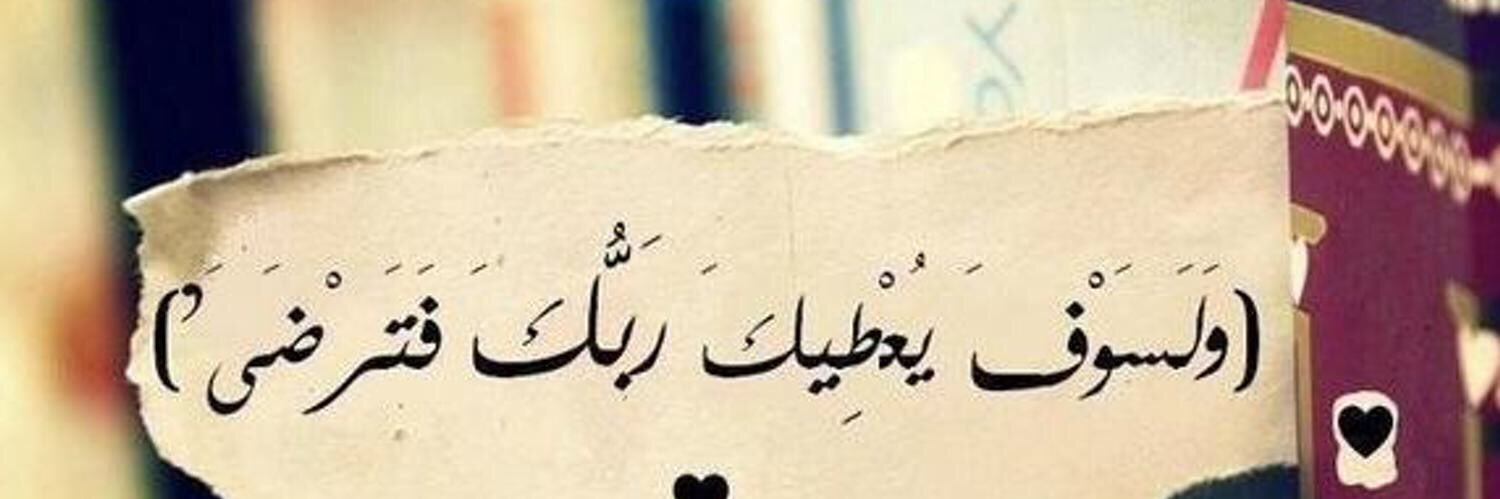 (وَلَسَوْفَ يُعْطِيكَ رَبُّكَ فَتَرْضَى)